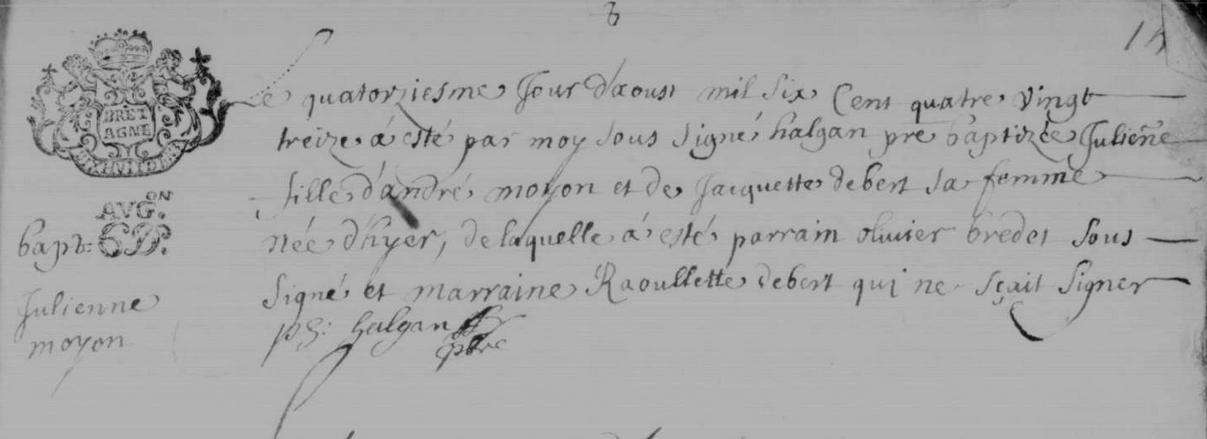 8
14
BRET
AGNE
AVG.ON
6 D.
bapt:
Julienne
moyon
Le quatorziesme Jour d'aoust mil six Cent quatre vingt
treize á esté par moy sous signé halgan pre baptizée Julienne
fille d'andré moyon et de Jacquette debert sa femme
née d'hyer, de laquelle á esté parrain olivier bredet sous
signé et marraine Raoullette debert qui ne sçait signer
ph: halgan
pbre